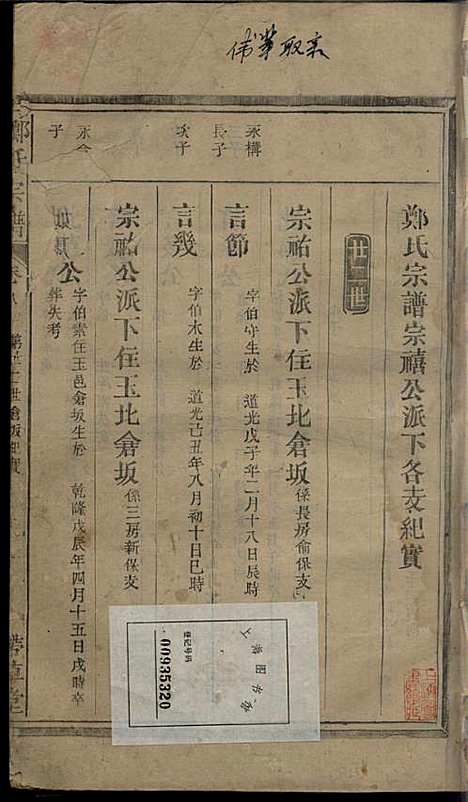 鄭氏宗譜宗禧公派下各支紀實
廿三世
宗祐公派下住玉北倉坂係長房俞保支
永構
長子
言節
字伯守生於 道光戊子年二月十八日辰時
次子
言幾
字伯木生於 道光己丑年八月初十日巳時
宗祐公派下住玉北倉坂係三房新保支
永
子
公
字伯素住玉邑倉坂生於 乾隆戊辰年四月十五日戌時卒
葬失考
鄭氏宗譜
上海图书馆
登记号码
00935320